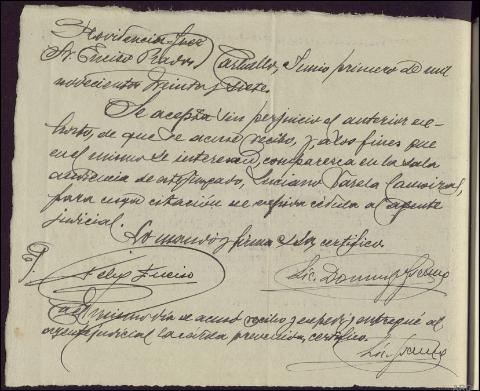 Providencia Juez
Sr. Enciso Prados Carballo, Junio primero de mil
novecientos treinta y siete.
Se acepta sin perjuicio el anterior ex-
horto, de que se acuse recibo, y a los fines que
en el mismo se interesan, comparezca en la sala
audiencia de este juzgado, Luciano Varela
para cuya citación se expida cédula al agente
judicial.
Lo mandó y firma S.Sª certifico.
Felix Enciso
Lic.
del mismo día se acusó recibo y expedí y entregué al
agente judicial la cédula prevenida, certifico.
Lic.